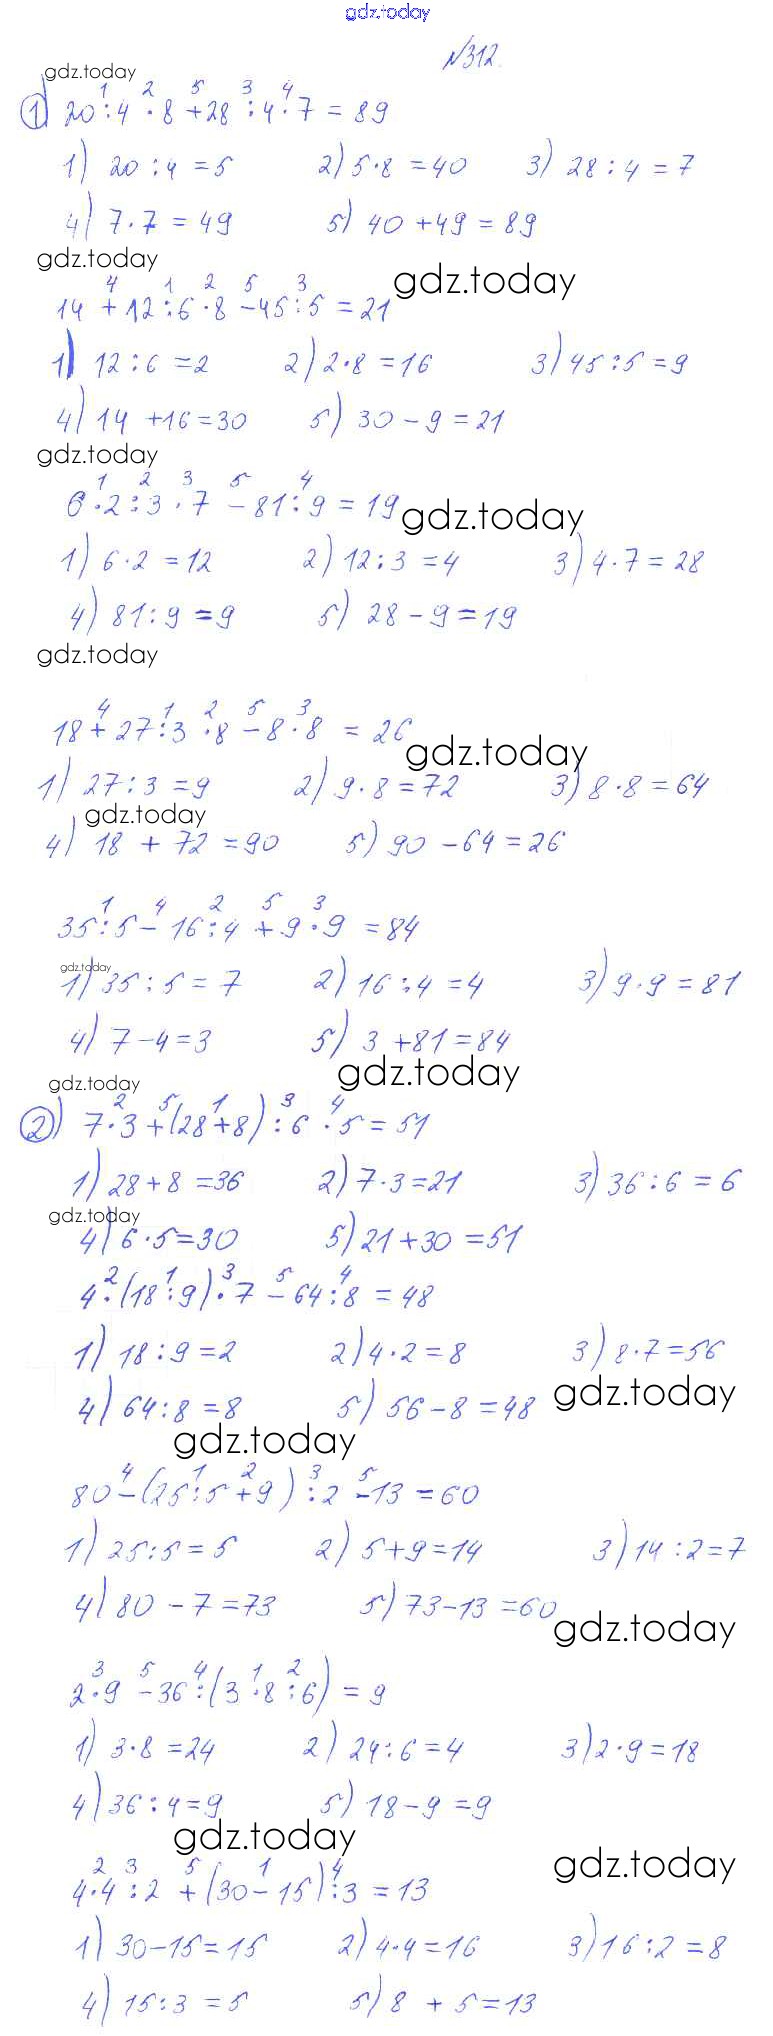 gdz.today
№312.
gdz.today
1) 20:4·8+28:4·7=89
1) 20:4=5 2) 5·8=40 3) 28:4=7
4) 7·7=49 5) 40+49=89
gdz.today
gdz.today
14+12:6·8-45:5=21
1) 12:6=2 2) 2·8=16 3) 45:5=9
4) 14+16=30 5) 30-9=21
gdz.today
6·2:3·7-81:9=19
gdz.today
1) 6·2=12 2) 12:3=4 3) 4·7=28
4) 81:9=9 5) 28-9=19
gdz.today
18+27:3·8-8·8=26
gdz.today
1) 27:3=9 2) 9·8=72 3) 8·8=64
gdz.today
4) 18+72=90 5) 90-64=26
35:5-16:4+9·9=84
gdz.today
1) 35:5=7 2) 16:4=4 3) 9·9=81
4) 7-4=3 5) 3+81=84
gdz.today
gdz.today
2) 7·3+(28+8):6·5=51
1) 28+8=36 2) 7·3=21 3) 36:6=6
gdz.today
4) 6·5=30 5) 21+30=51
4·(18:9)·7-64:8=48
1) 18:9=2 2) 4·2=8 3) 8·7=56
4) 64:8=8 5) 56-8=48
gdz.today
gdz.today
80-(25:5+9):2-13=60
1) 25:5=5 2) 5+9=14 3) 14:2=7
4) 80-7=73 5) 73-13=60
gdz.today
2·9-36:(3·8:6)=9
1) 3·8=24 2) 24:6=4 3) 2·9=18
4) 36:4=9 5) 18-9=9
gdz.today
gdz.today
4·4:2+(30-15):3=13
1) 30-15=15 2) 4·4=16 3) 16:2=8
4) 15:3=5 5) 8+5=13